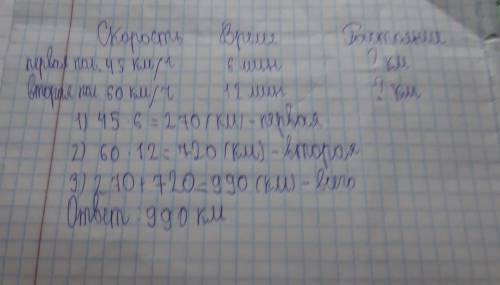 Скорость Время Расстояние
первая пол. 45 км/ч 6 мин ? км
вторая пол 60 км/ч 12 мин ? км
1) 45 · 6 = 270 (км) - первая
2) 60 · 12 = 720 (км) - вторая
3) 270 + 720 = 990 (км) - всего
Ответ: 990 км.